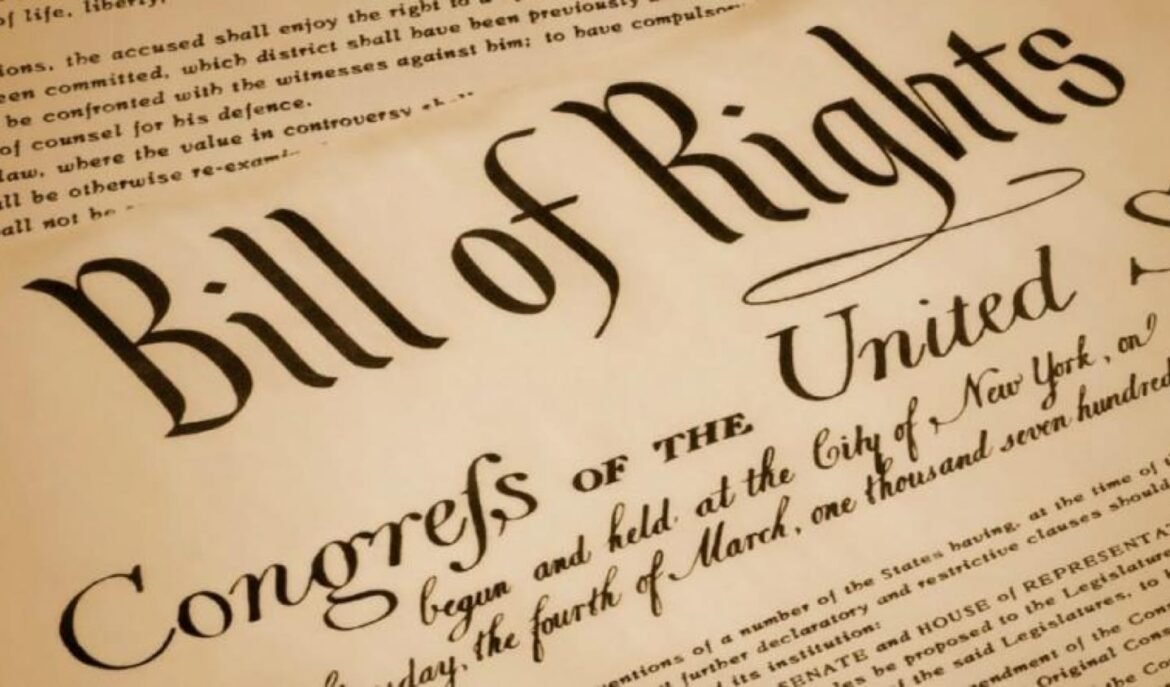 of life, liberty,
ions, the accused shall enjoy the right to a
een committed, which district shall have been previously
be confronted with the witnesses against him; to have compulsory
of counsel for his defence.
law, where the value in controversy
ll be otherwise re-exami
all not be
Bill of Rights
Congreſs OF THE United S
begun and held at the City of New York, on
day, the fourth of March, one thousand seven hundred
entions of a number of the States having, at the time of
t further declaratory and restrictive clauses should
its institution:
SENATE and HOUSE of REPRESENTA
les be proposed to the Legislature
the said Legislatures, to
endment of the Con
Original Cons
the Con